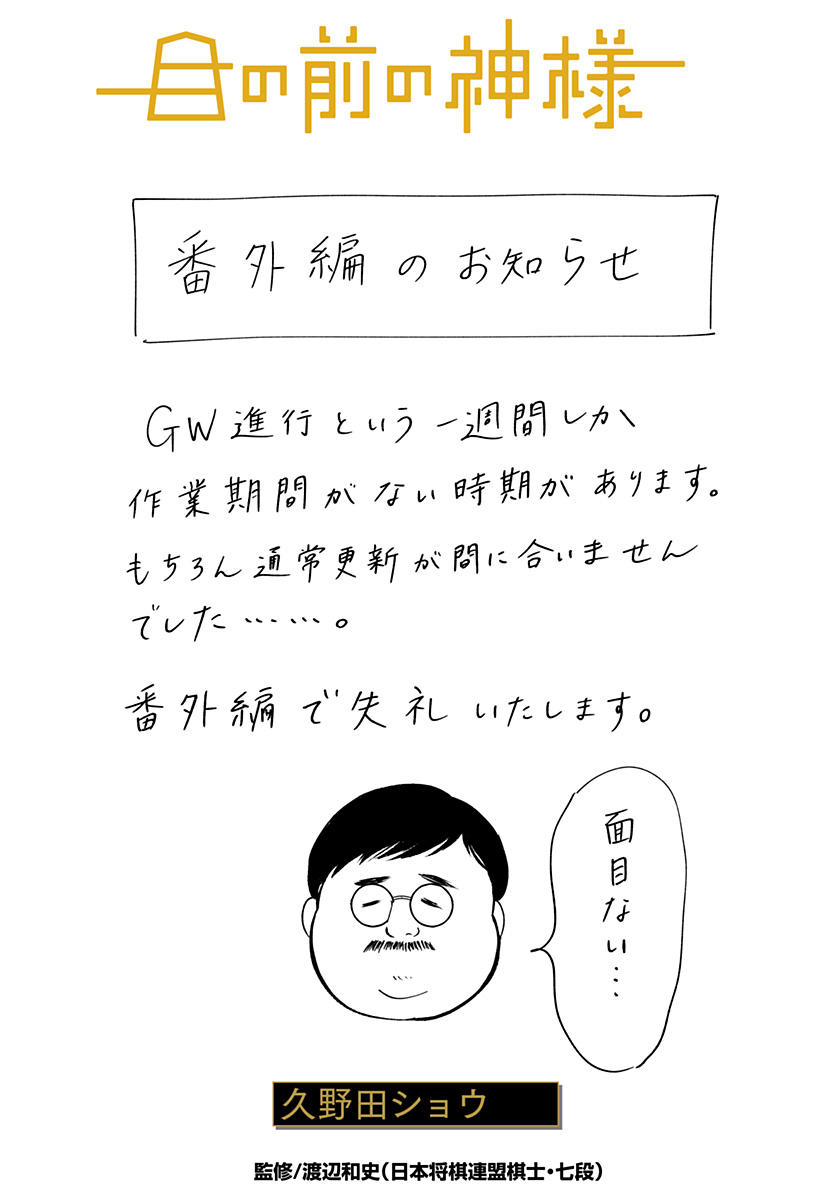 目の前の神様
番外編のお知らせ
GW進行という一週間しか
作業期間がない時期があります。
もちろん通常更新が間に合いません
でした……。
番外編で失礼いたします。
面目ない…
久野田ショウ
監修/渡辺和史(日本将棋連盟棋士・七段)